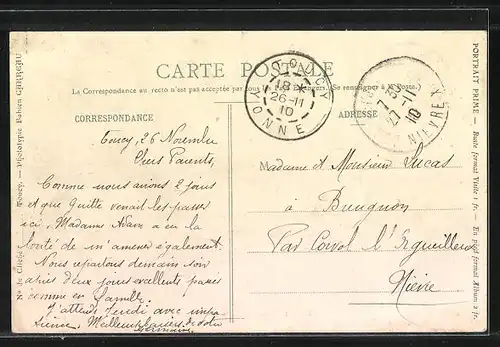 CARTE POSTALE
La Correspondance au recto n'est pas acceptée par tous les pays étrangers. (Se renseigner à la Poste.)
CORRESPONDANCE
ADRESSE
TOUCY
18
26-11
10
YONNE
27-11
10
NIEVRE
Toucy, 26 Novembre
Chers Parents,
Comme nous avions 2 jours
et que venait les passer
ici, Madame Adam a en la
bonté de m'amener également
Nous repartons demain soir
après deux jours excellents passés
comme en famille
J'attends Jeudi avec impa
tience, Meilleurs baisers de votre
Germaine
Madame et Monsieur Lucas
à
Par Corvol l'Orgueilleux
Nièvre
PORTRAIT PRIME — Buste format Visite 1 fr. — En pied format Album 2 fr.
Toucy. — Phototypie